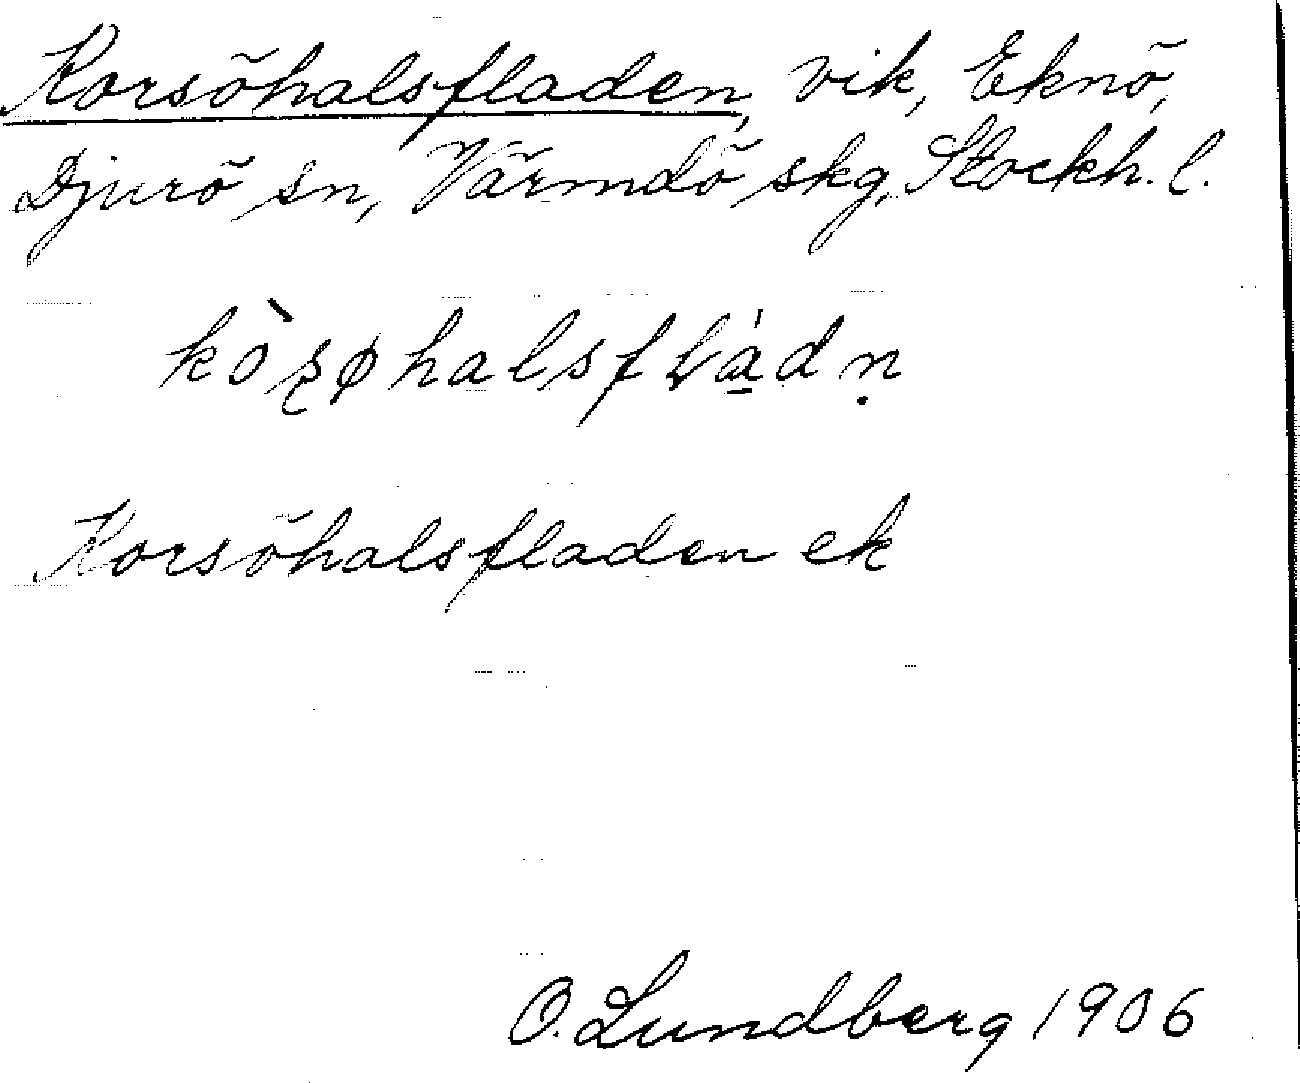 Korsöhalsfladen, vik, Eknö,
Djurö sn, Värmdö skg, Stockh. l.
kòʂøhalsfládṇ
Korsöhalsfladen ek
O. Lundberg 1906